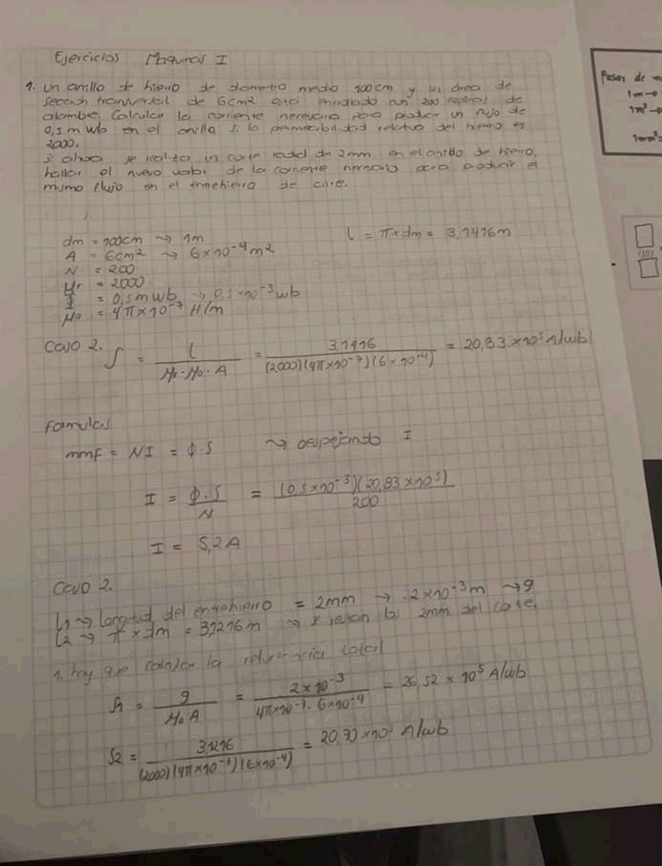 Ejercicios Maquinas I
1. Un anillo de hierro de diametro medio 100cm y un area de
seccion transversal de 6cm2 esta enrollado con 200 espiras de
alambre, Calcular la corriente necesaria para producir un flujo de
0,5 m wb en el anillo si la permeabilidad relativa del hierro es
2000.
si ahora se realiza un corte radial de 2mm en el anillo de hierro,
hallar el nuevo valor de la corriente necesaria para producir el
mismo flujo en el entrehierro de aire.
dm = 100cm → 1m
l = π×dm = 3,1416m
A = 6cm² → 6×10⁻⁴m²
N = 200
μr = 2000
Φ = 0,5 m wb → 0,5×10⁻³wb
μo = 4π×10⁻⁷ H/m
Caso 2. S = l / μr·μo·A = 3,1416 / (2000)(4π×10⁻⁷)(6×10⁻⁴) = 20,83×10⁵ A/wb
Formulas
mmf = NI = Φ·S → despejando I
I = Φ·S / N = (0,5×10⁻³)(20,83×10⁵) / 200
I = 5,2A
Caso 2.
L1 → longitud del entrehierro = 2mm → 2×10⁻³m → g
L2 → π×dm = 3,1216m → 2mm del corte.
1. hay que calcular la reluctancia total
S1 = g / μo A = 2×10⁻³ / 4π×10⁻⁷·6×10⁻⁴ = 26,52×10⁵ A/wb
S2 = 3,1216 / (2000)(4π×10⁻⁷)(6×10⁻⁴) = 20,70×10⁵ A/wb
1m→
1m²→